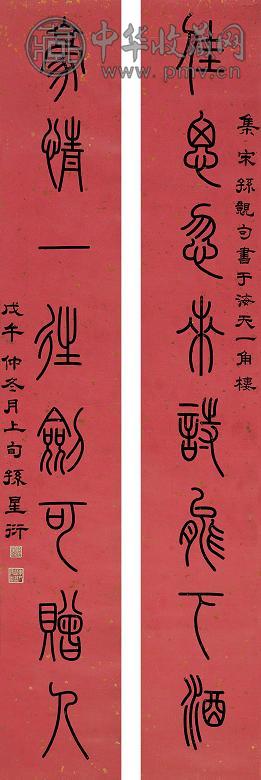 中华收藏网
www.pmv.cn
集宋孫覿句書于海天一角樓
佳思忽來詩能下酒
豪情一往劍可贈人
戊午仲冬月上旬孫星衍